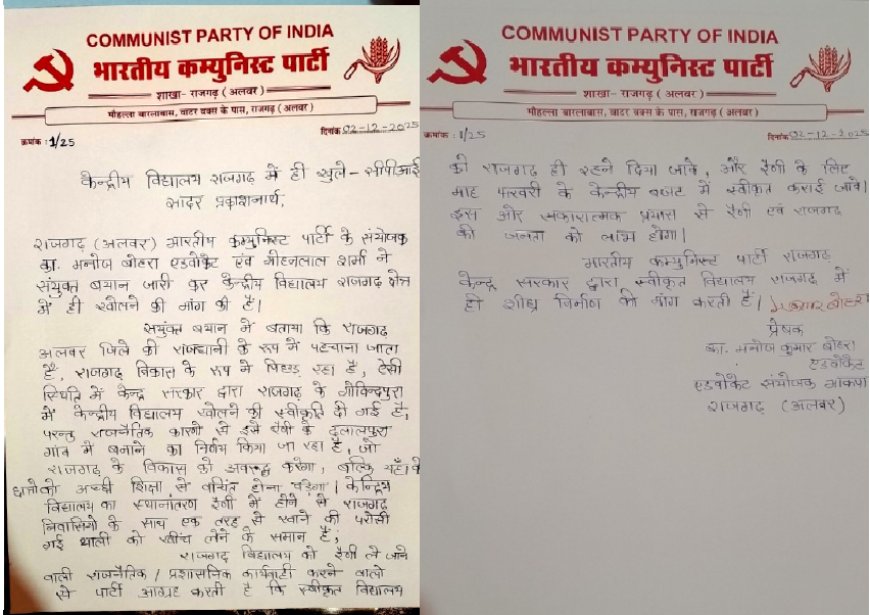 COMMUNIST PARTY OF INDIA
भारतीय कम्युनिस्ट पार्टी
शाखा- राजगढ़ ( अलवर )
मौहल्ला बारलाबास, वाटर वक्स के पास, राजगढ़ ( अलवर )
क्रमांक : 1/25
दिनांक 02-12-2025
केन्द्रीय विद्यालय राजगढ़ में ही खुले - सीपीआई
सादर प्रकाशनार्थ,
राजगढ़ (अलवर) भारतीय कम्युनिस्ट पार्टी के संयोजक
का. मनोज बोहरा एडवोकेट एवं मोहनलाल शर्मा ने
संयुक्त बयान जारी कर केन्द्रीय विद्यालय राजगढ़ क्षेत्र
में ही खोलने की मांग की है।
संयुक्त बयान में बताया कि राजगढ़
अलवर जिले की राजधानी के रूप में पहचाना जाता
है, राजगढ़ विकास के रूप में पिछड़ रहा है, ऐसी
स्थिति में केन्द्र सरकार द्वारा राजगढ़ के गोविन्दपुरा
में केन्द्रीय विद्यालय खोलने की स्वीकृति दी गई है,
परन्तु राजनैतिक कारणों से इसे रैणी के दलालपुरा
गांव में बनाने का निर्णय किया जा रहा है, जो
राजगढ़ के विकास को अवरूद्ध करेगा, बल्कि यहाँ के
छात्रों को अच्छी शिक्षा से वंचित होना पड़ेगा। केन्द्रिय
विद्यालय का स्थानांतरण रैणी में होने से राजगढ़
निवासियों के साथ एक तरह से खाने की परोसी
गई थाली को खींच लेने के समान है,
राजगढ़ विद्यालय को रैणी ले जाने
वाली राजनैतिक / प्रशासनिक कार्यवाही करने वालो
से पार्टी आग्रह करती है कि स्वीकृत विद्यालय
COMMUNIST PARTY OF INDIA
भारतीय कम्युनिस्ट पार्टी
शाखा- राजगढ़ ( अलवर )
मौहल्ला बारलाबास, वाटर वक्स के पास, राजगढ़ ( अलवर )
क्रमांक : 1/25
दिनांक 02-12-2025
को राजगढ़ ही रहने दिया जावे, और रैणी के लिए
माह फरवरी के केन्द्रीय बजट में स्वीकृत कराई जावे।
इस और सकारात्मक प्रयास से रैणी एवं राजगढ़
की जनता को लाभ होगा।
भारतीय कम्युनिस्ट पार्टी राजगढ़
केन्द्र सरकार द्वारा स्वीकृत विद्यालय राजगढ़ में
ही शीघ्र निर्माण की मांग करती है।
प्रेषक
का. मनोज कुमार बोहरा
एडवोकेट
एडवोकेट संयोजक भाकपा
राजगढ़ (अलवर)